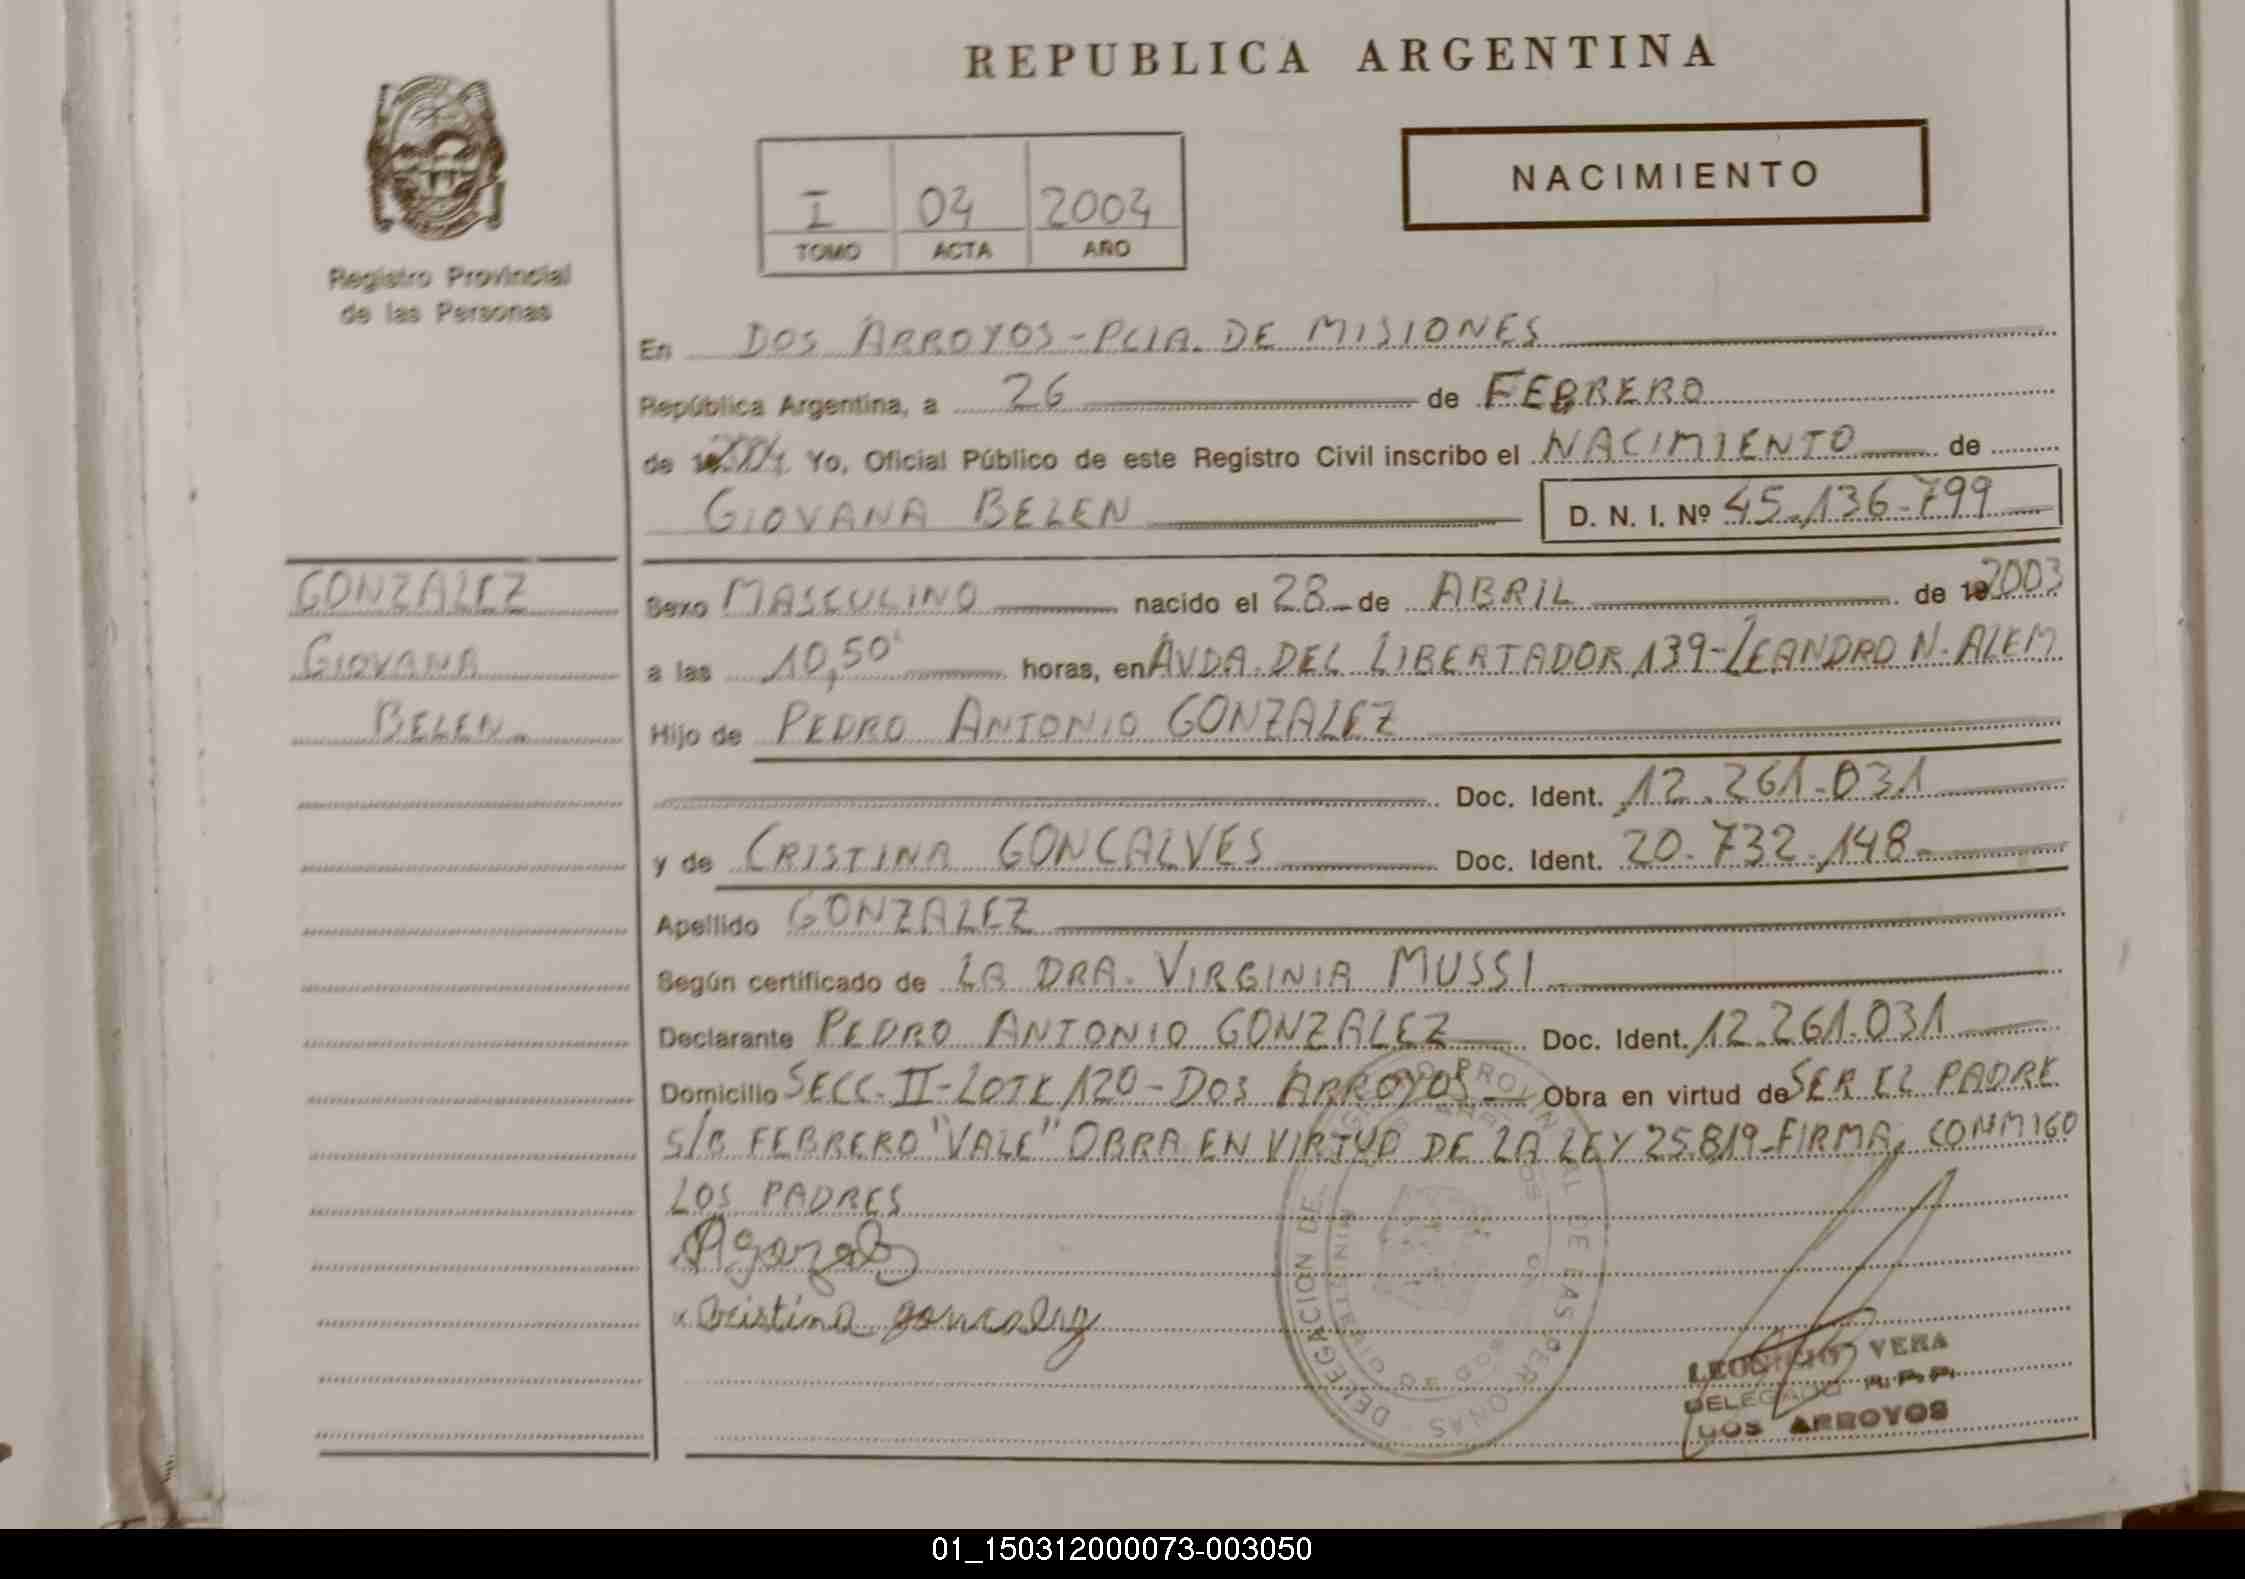 REPUBLICA ARGENTINA
NACIMIENTO
I 04 2004
TOMO ACTA AÑO
Registro Provincial
de las Personas
En DOS ARROYOS-PCIA. DE MISIONES
República Argentina, a 26 de FEBRERO
de 2004 Yo, Oficial Público de este Registro Civil inscribo el NACIMIENTO de
GIOVANA BELEN D. N. I. Nº 45.136.799
GONZALEZ
GIOVANA
BELEN.
Sexo MASCULINO nacido el 28 de ABRIL de 192003
a las 10,50 horas, en AVDA. DEL LIBERTADOR 139-LEANDRO N. ALEM
Hijo de PEDRO ANTONIO GONZALEZ
Doc. Ident. 12.261.031
y de CRISTINA GONCALVES Doc. Ident. 20.732.148
Apellido GONZALEZ
Según certificado de LA DRA. VIRGINIA MUSSI
Declarante PEDRO ANTONIO GONZALEZ Doc. Ident. 12.261.031
Domicilio SECC. II-LOTE 120-DOS ARROYOS Obra en virtud de SER EL PADRE
S/B FEBRERO "VALE" OBRA EN VIRTUD DE LA LEY 25.819-FIRMA, CONMIGO
LOS PADRES
Cristina
DELEGACION DE LAS PERSONAS
LEONCIO VERA
DELEGADO R.P.P.
DOS ARROYOS
01_150312000073-003050